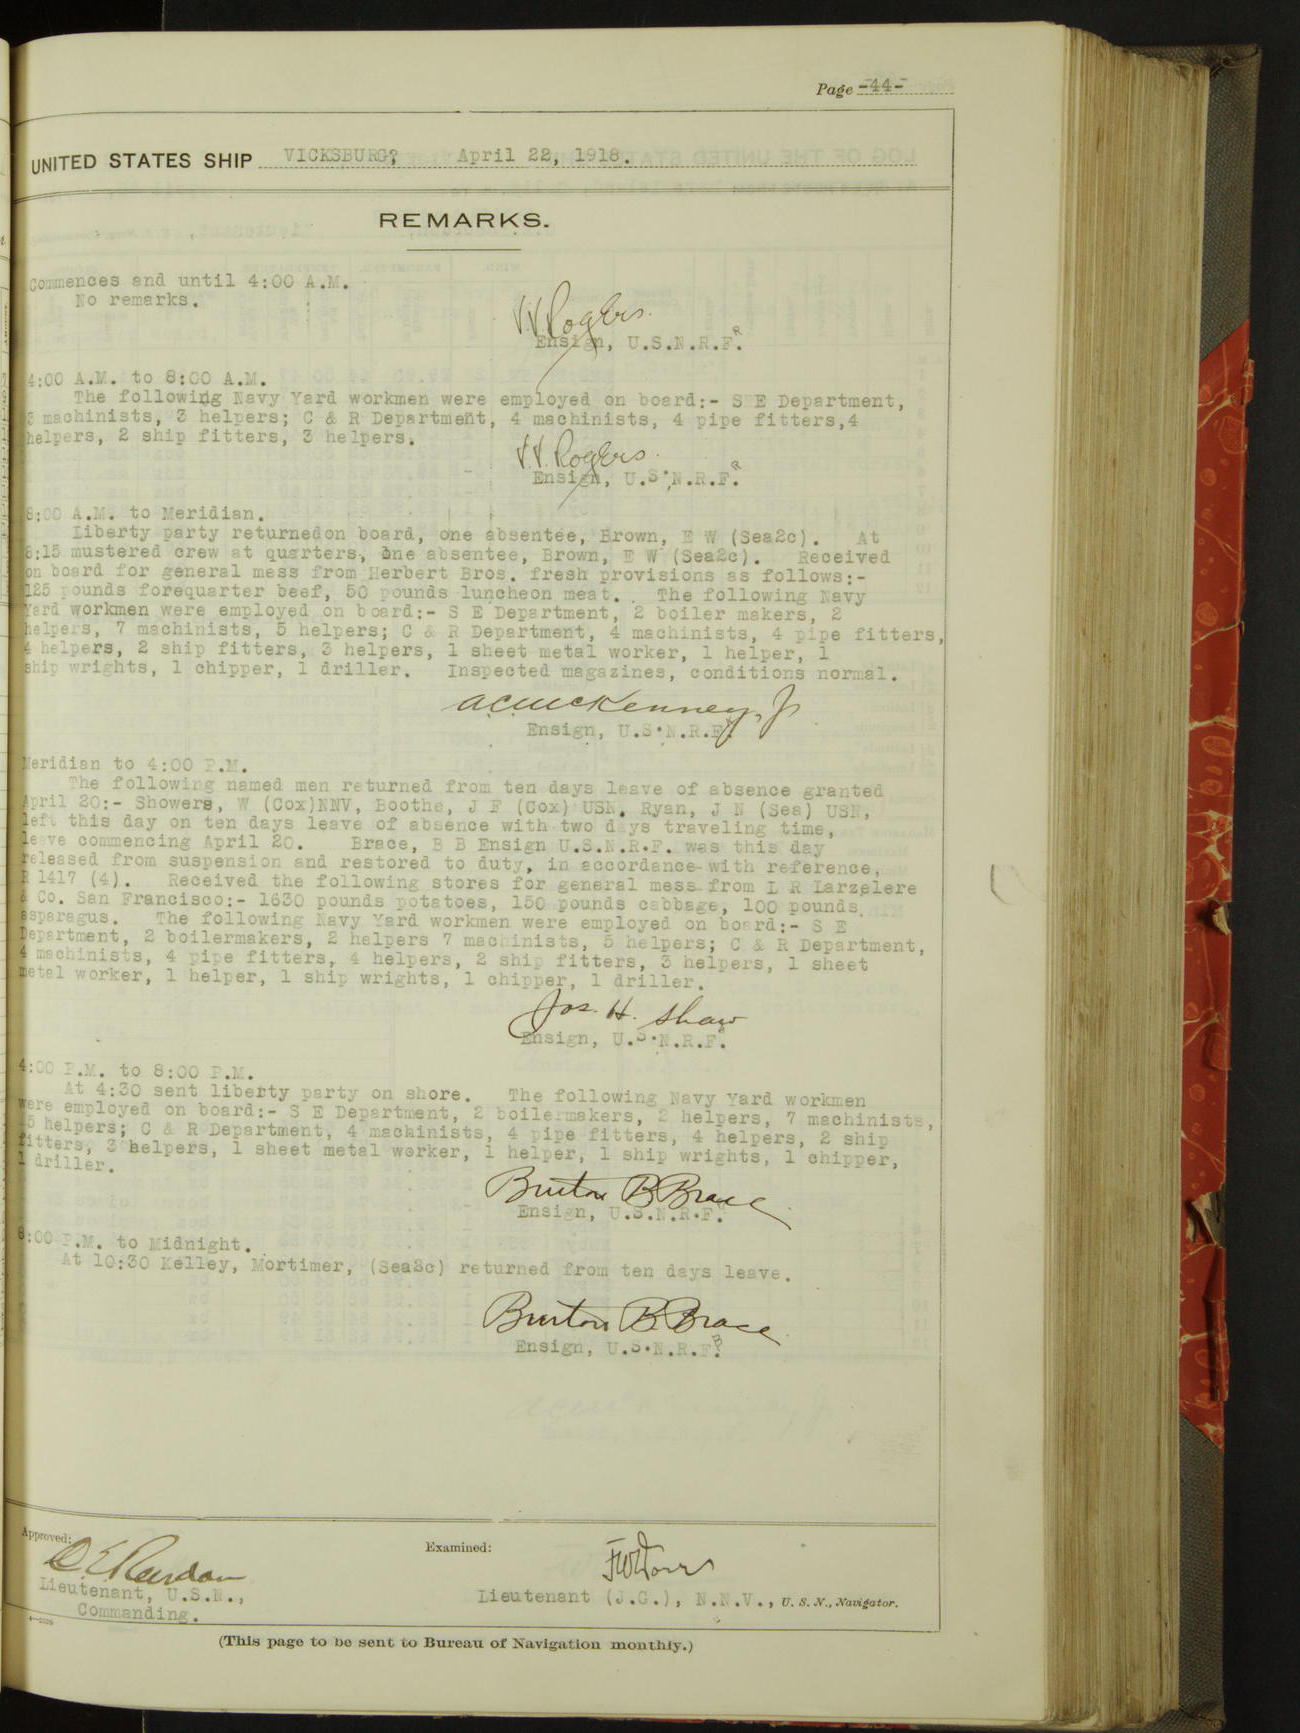 Page -44-
UNITED STATES SHIP VICKSBURG? April 22, 1918.
REMARKS.
Commences and until 4:00 A.M.
No remarks.
Rogers.
Ensign, U.S.N.R.F.
4:00 A.M. to 8:00 A.M.
The following Navy Yard workmen were employed on board:- S E Department,
3 machinists, 3 helpers; C & R Department, 4 machinists, 4 pipe fitters,4
helpers, 2 ship fitters, 3 helpers.
Rogers.
Ensign, U.S.N.R.F.
8:00 A.M. to Meridian.
Liberty party returnedon board, one absentee, Brown, E W (Sea2c). At
8:15 mustered crew at quarters, one absentee, Brown, E W (Sea2c). Received
on board for general mess from Herbert Bros. fresh provisions as follows:-
125 pounds forequarter beef, 50 pounds luncheon meat. The following Navy
Yard workmen were employed on board:- S E Department, 2 boiler makers, 2
helpers, 7 machinists, 5 helpers; C & R Department, 4 machinists, 4 pipe fitters,
4 helpers, 2 ship fitters, 3 helpers, 1 sheet metal worker, 1 helper, 1
ship wrights, 1 chipper, 1 driller. Inspected magazines, conditions normal.
A C McKenney, Jr
Ensign, U.S.N.R.F.
Meridian to 4:00 P.M.
The following named men returned from ten days leave of absence granted
April 20:- Showers, W (Cox)NNV, Boothe, J F (Cox) USN. Ryan, J N (Sea) USN,
left this day on ten days leave of absence with two days traveling time,
leave commencing April 20. Brace, B B Ensign U.S.N.R.F. was this day
released from suspension and restored to duty, in accordance with reference,
R 1417 (4). Received the following stores for general mess from L R Larzelere
& Co. San Francisco:- 1630 pounds potatoes, 150 pounds cabbage, 100 pounds
asparagus. The following Navy Yard workmen were employed on board:- S E
Department, 2 boilermakers, 2 helpers 7 machinists, 5 helpers; C & R Department,
4 machinists, 4 pipe fitters, 4 helpers, 2 ship fitters, 3 helpers, 1 sheet
metal worker, 1 helper, 1 ship wrights, 1 chipper, 1 driller.
Jos. H. Shaw
Ensign, U.S.N.R.F.
4:00 P.M. to 8:00 P.M.
At 4:30 sent liberty party on shore. The following Navy Yard workmen
were employed on board:- S E Department, 2 boilermakers, 2 helpers, 7 machinists,
5 helpers; C & R Department, 4 machinists, 4 pipe fitters, 4 helpers, 2 ship
fitters, 3 helpers, 1 sheet metal worker, 1 helper, 1 ship wrights, 1 chipper,
1 driller.
Burton B. Brace
Ensign, U.S.N.R.F.
8:00 P.M. to Midnight.
At 10:30 Kelley, Mortimer, (Sea2c) returned from ten days leave.
Burton B. Brace
Ensign, U.S.N.R.F.
Approved:
C. E. Reordan
Examined:
Lieutenant, U.S.N.,
Lieutenant (J.G.), N.N.V., U. S. N., Navigator.
Commanding.
(This page to be sent to Bureau of Navigation monthly.)